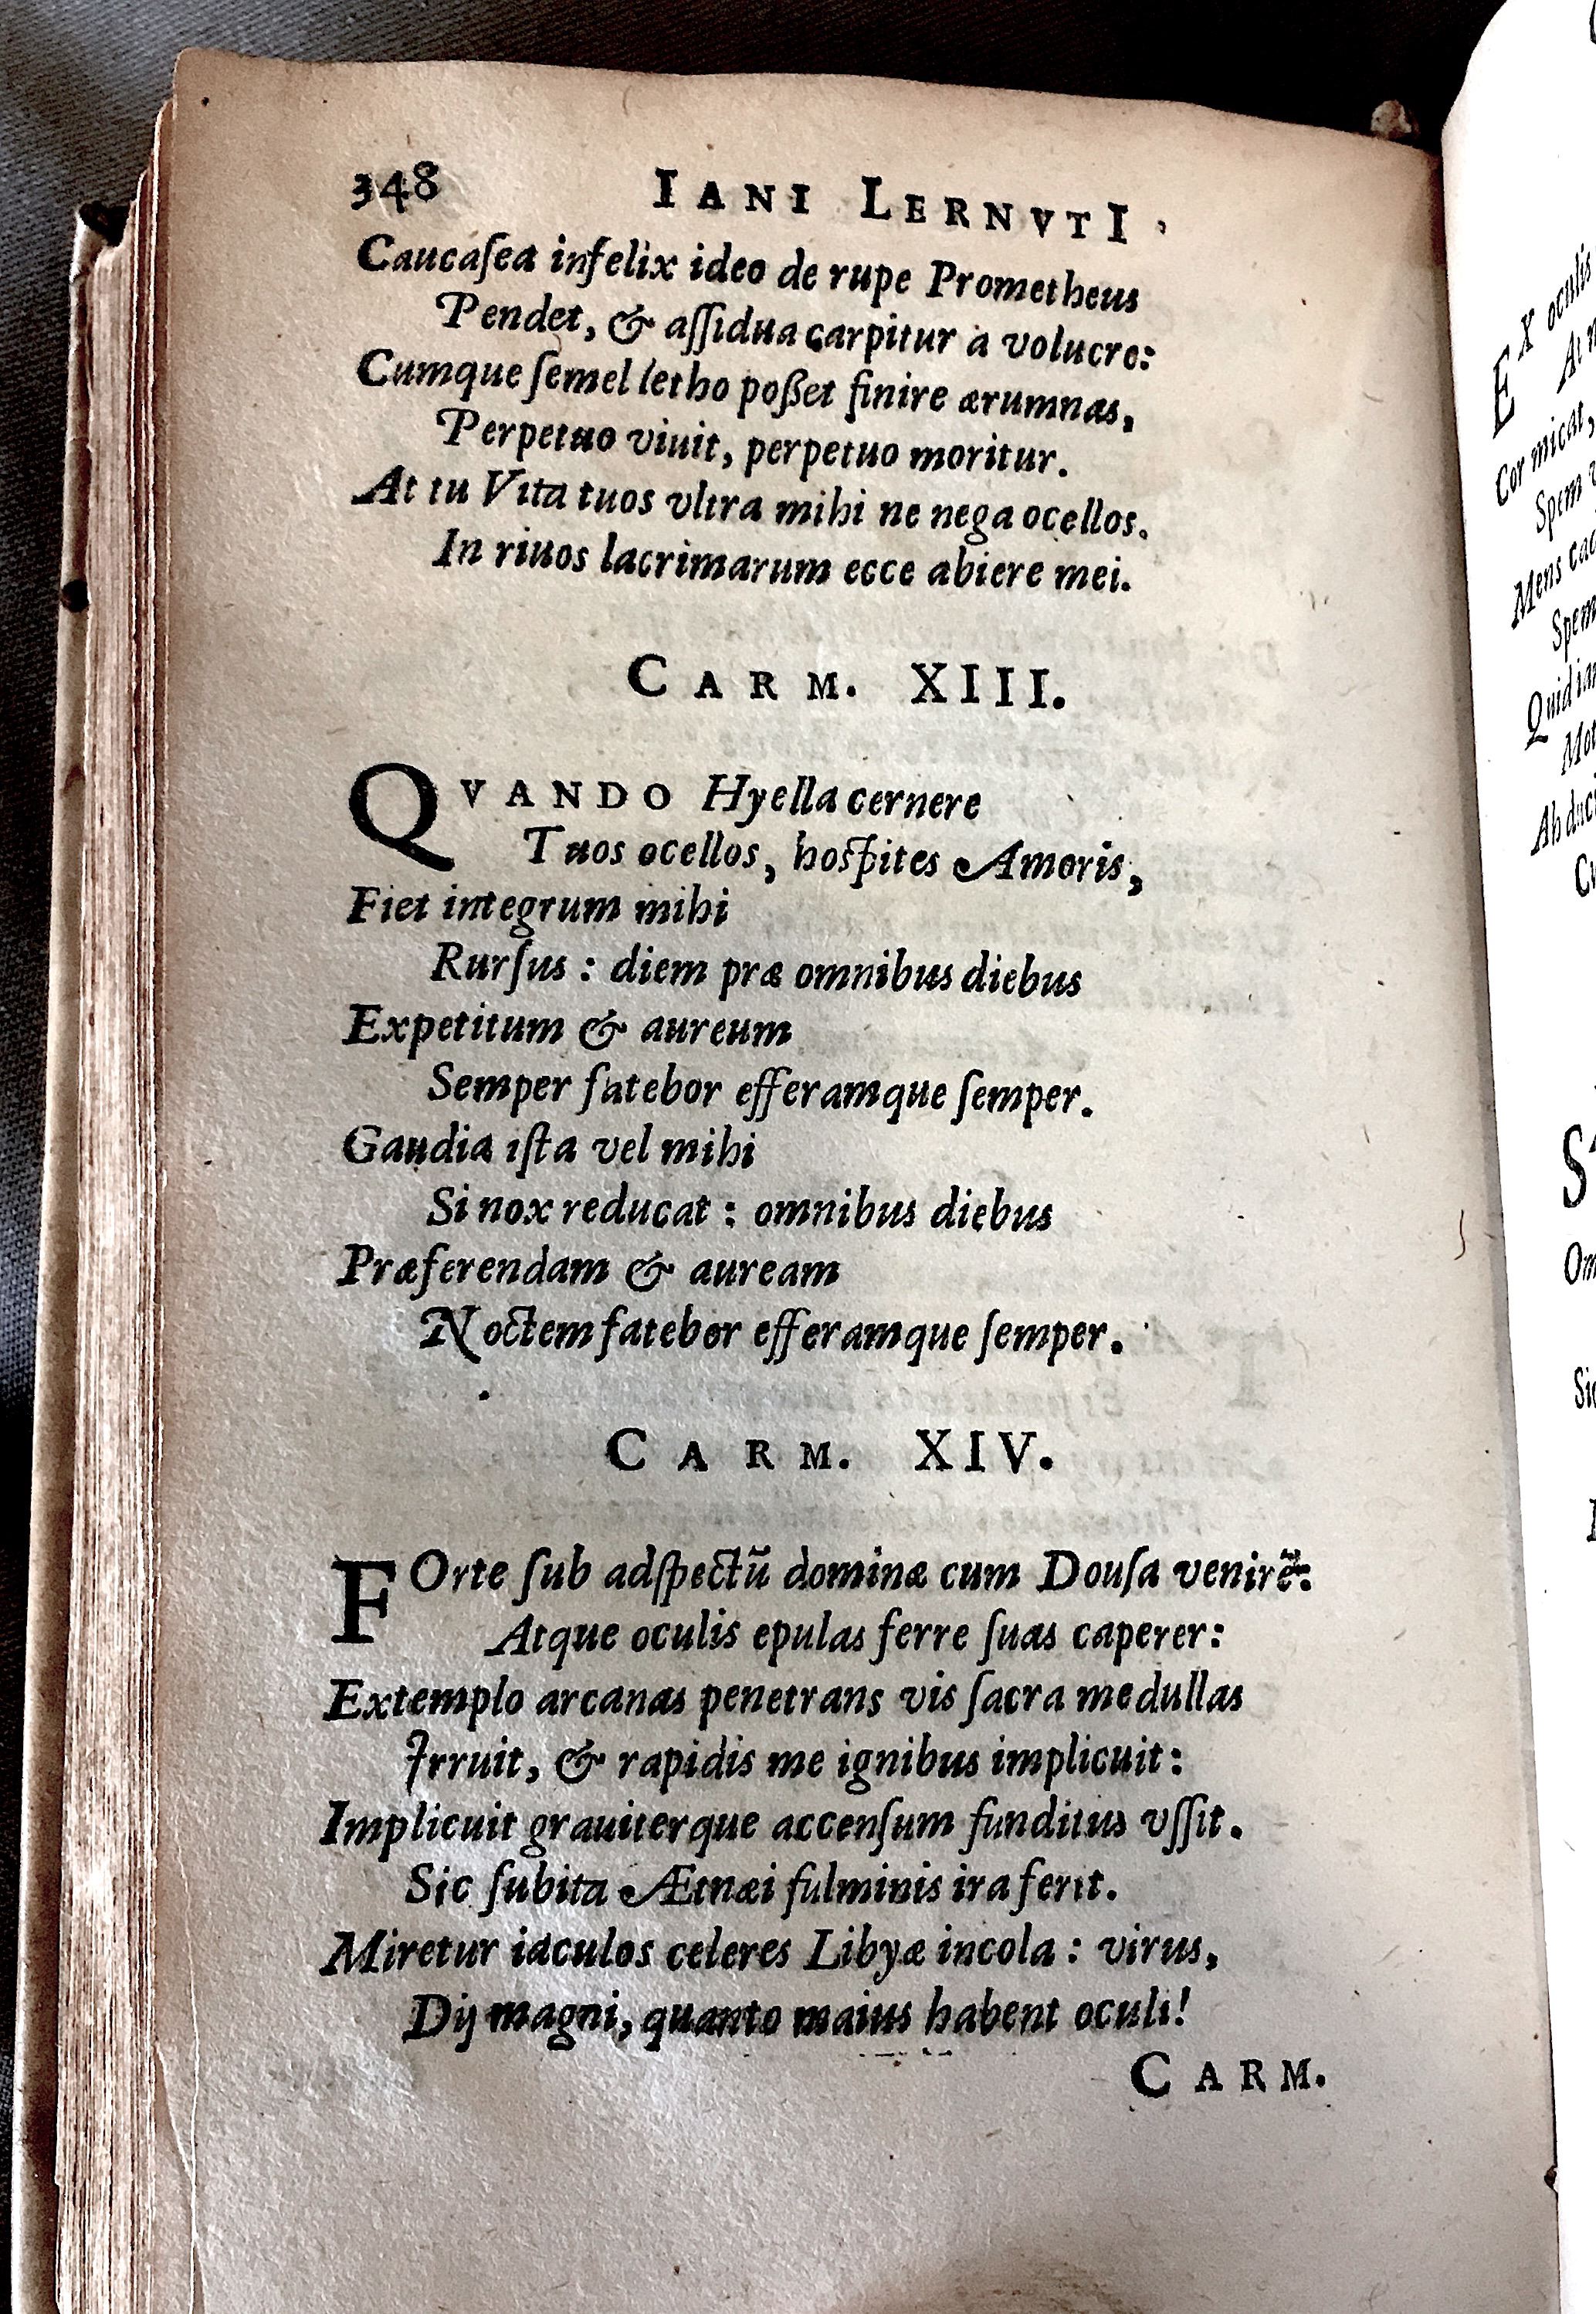 348 IANI LERNVTI
Caucaſea infelix ideo de rupe Prometheus
Pendet, & aſſidua carpitur à volucre:
Cumque ſemel letho poßet finire ærumnas,
Perpetuo viuit, perpetuo moritur.
At tu Vita tuos vltra mihi ne nega ocellos.
In riuos lacrimarum ecce abiere mei.
CARM. XIII.
QVANDO Hyella cernere
Tuos ocellos, hoſpites Amoris,
Fiet integrum mihi
Rurſus : diem præ omnibus diebus
Expetitum & aureum
Semper fatebor efferamque ſemper.
Gaudia iſta vel mihi
Si nox reducat : omnibus diebus
Præferendam & auream
Noctem fatebor efferamque ſemper.
CARM. XIV.
FOrte ſub adſpectū dominæ cum Douſa venirē:
Atque oculis epulas ferre ſuas caperer:
Extemplo arcanas penetrans vis ſacra medullas
Irruit, & rapidis me ignibus implicuit:
Implicuit grauiterque accenſum funditus vſſit.
Sic ſubita Ætnæi fulminis ira ferit.
Miretur iaculos celeres Libyæ incola : virus,
Dij magni, quanto maius habent oculi!
CARM.
Ex oculis
Cor micat,
Spem
Mens